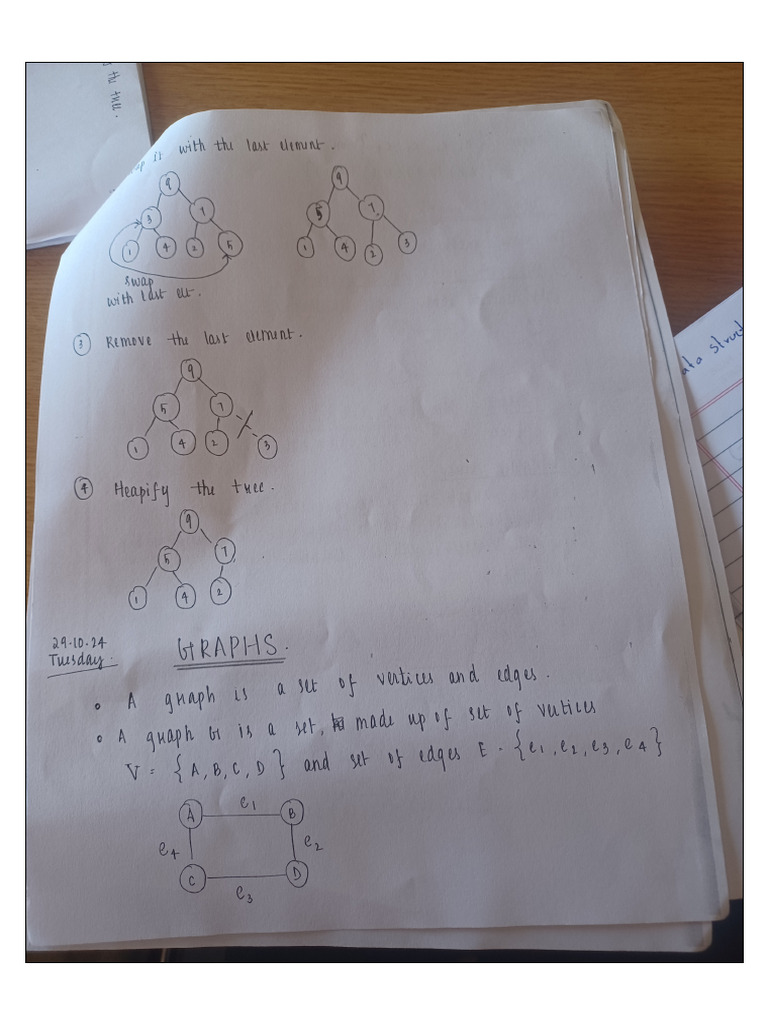 s the tree.
ap it with the last element.
9 9
3 7 5 7
1 4 2 5 1 4 2 3
swap
with last elt.
③ Remove the last element.
9
5 7
1 4 2 3
④ Heapify the tree.
9
5 7
1 4 2
29.10.24
Tuesday.
GRAPHS.
• A graph is a set of vertices and edges.
• A graph G is a set, made up of set of vertices
V = {A, B, C, D} and set of edges E = {e1, e2, e3, e4}
A e1 B
e4 e2
C e3 D
ata struct